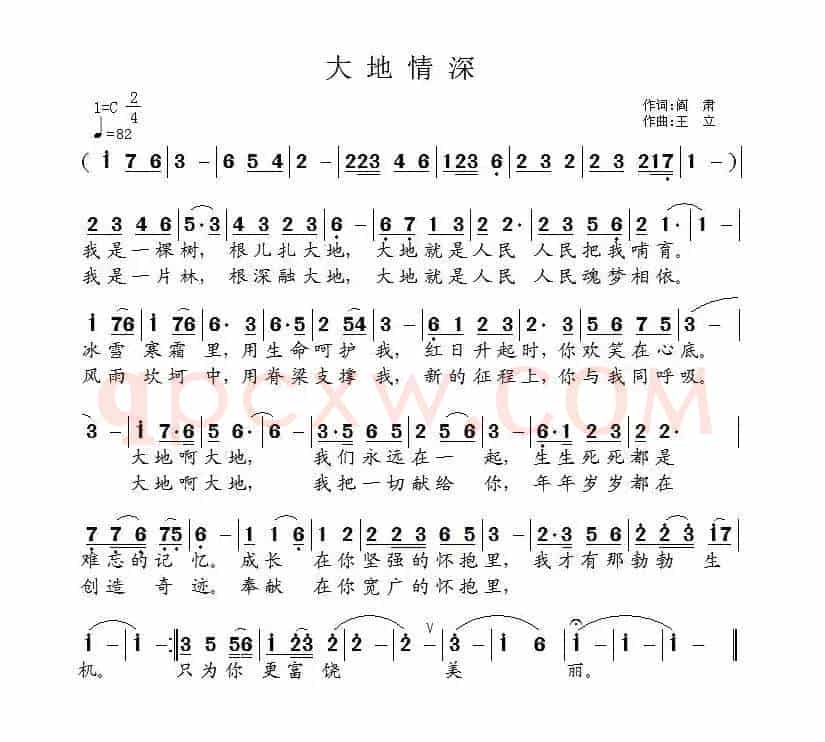 大地情深
1=C 2/4
♩=82
作词:阎 肃
作曲:王 立
( i 7 6 | 3 - | 6 5 4 | 2 - | 2 2 3 4 6 | 1 2 3 6 | 2 3 2 | 2 3 2 1 7 | 1 - ) |
2 3 4 6 | 5 · 3 | 4 3 2 3 | 6 - | 6 7 1 3 | 2 2 · | 2 3 5 6 | 2 1 · | 1 - |
我是一棵树, 根儿扎大地, 大地就是人民 人民把我哺育。
我是一片林, 根深融大地, 大地就是人民 人民魂梦相依。
i 7 6 | i 7 6 | 6 · 3 | 6 · 5 | 2 5 4 | 3 - | 6 1 2 3 | 2 · 5 | 6 7 5 | 3 - |
冰雪 寒霜 里, 用生命呵护 我, 红日升起时, 你欢笑在心底。
风雨 坎坷 中, 用脊梁支撑 我, 新的征程上, 你与我同呼吸。
qpcxw.com
3 - | i 7 · 6 | 5 6 · | 6 - | 3 · 5 6 5 | 2 5 6 | 3 - | 6 · 1 2 3 | 2 2 · |
大地啊大地, 我们永远在一 起, 生生死死都是
大地啊大地, 我把一切献给 你, 年年岁岁都在
7 7 6 7 5 | 6 - | 1 1 6 | 1 2 | 2 2 3 6 5 | 3 - | 2 · 3 5 | 6 2 2 3 | i 7 |
难忘的记 忆。 成长 在你坚强的怀抱里, 我才有那勃勃 生
创造 奇迹。 奉献 在你宽广的怀抱里,
i - | i - :‖ 3 5 5 6 | i 2 3 | 2 - | 2 - | 3 - | i 6 | i - | i - ‖
机。 只为你 更富饶 美 丽。